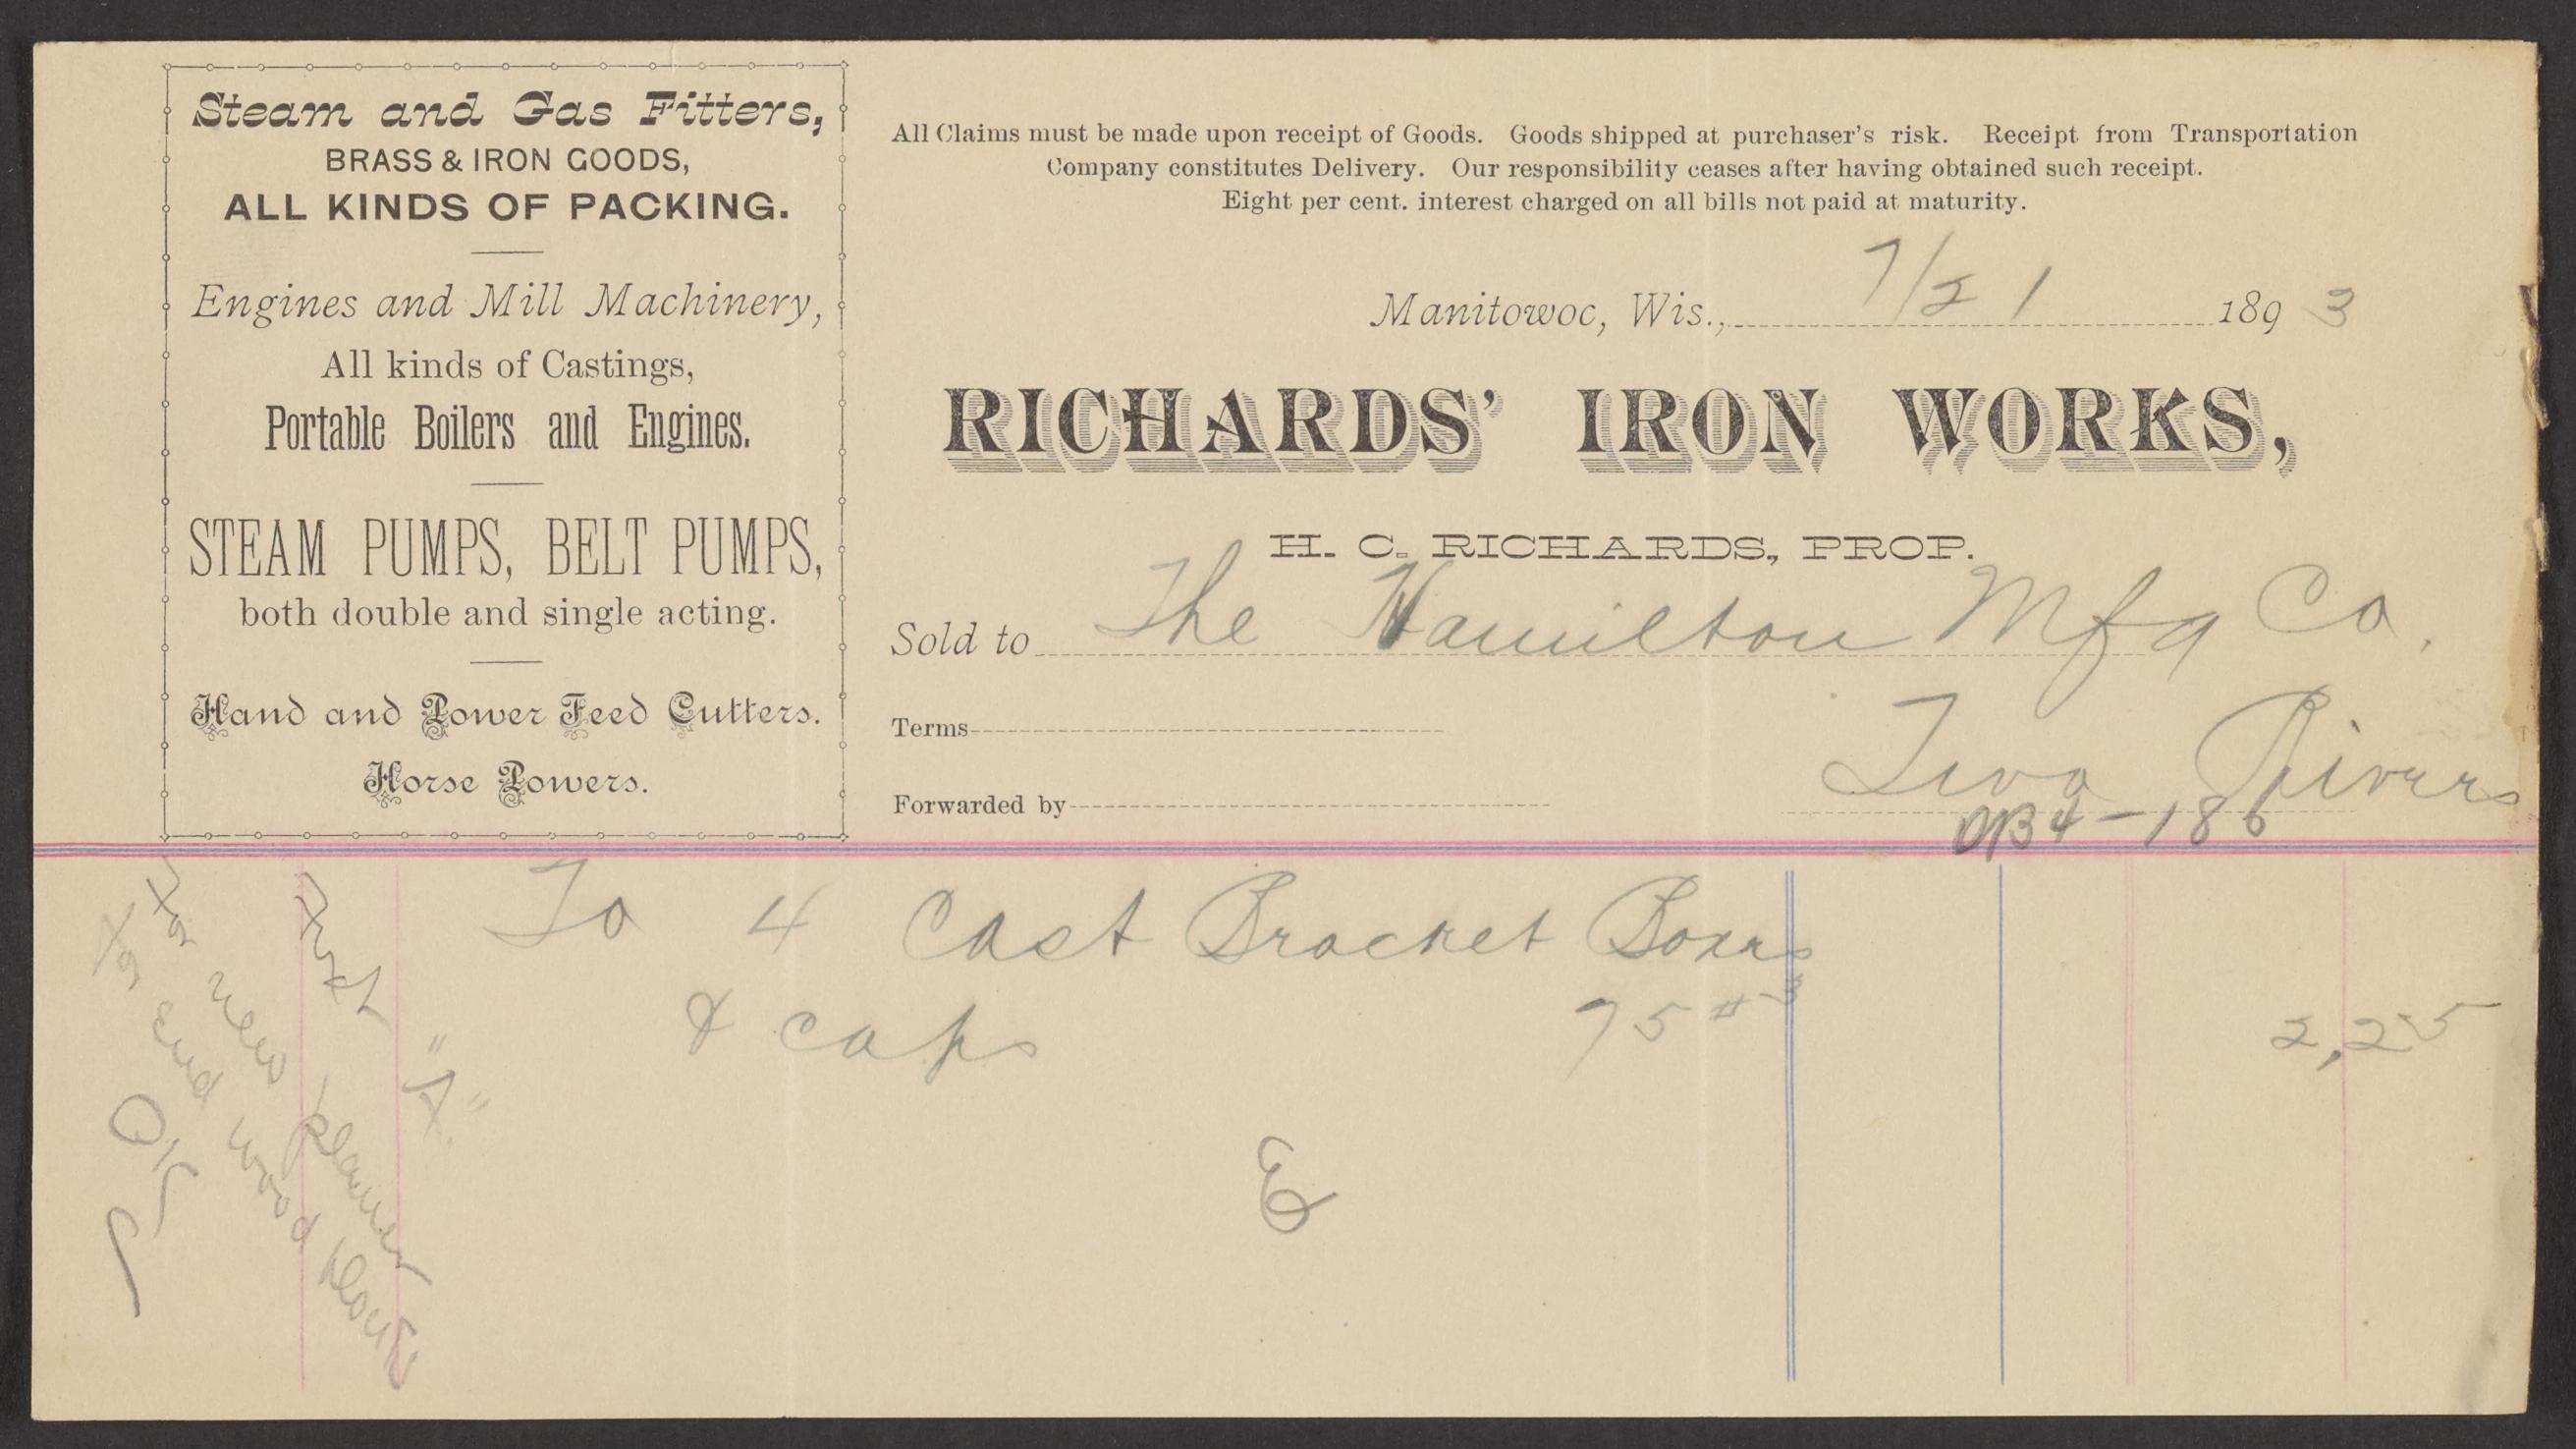 Steam and Gas Fitters,
BRASS & IRON GOODS,
ALL KINDS OF PACKING.
Engines and Mill Machinery,
All kinds of Castings,
Portable Boilers and Engines.
STEAM PUMPS, BELT PUMPS,
both double and single acting.
Hand and Power Feed Cutters.
Horse Powers.
All Claims must be made upon receipt of Goods. Goods shipped at purchaser's risk. Receipt from Transportation
Company constitutes Delivery. Our responsibility ceases after having obtained such receipt.
Eight per cent. interest charged on all bills not paid at maturity.
Manitowoc, Wis., 7/21 1893
RICHARDS' IRON WORKS,
H. C. RICHARDS, PROP.
Sold to The Hamilton Mfg Co.
Terms
Two Rivers
Forwarded by
4-186
To 4 Cast Bracket Boxes
& caps 75 # 3 2,25
"A"
for new planer
for End wood
OK